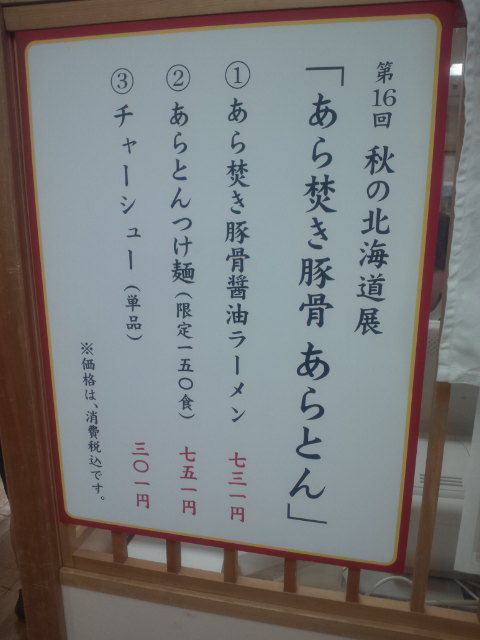 第16回 秋の北海道展
「あら焚き豚骨 あらとん」
① あら焚き豚骨醤油ラーメン 七三一円
② あらとんつけ麺(限定一五〇食) 七五一円
③ チャーシュー(単品) 三〇一円
※価格は、消費税込です。